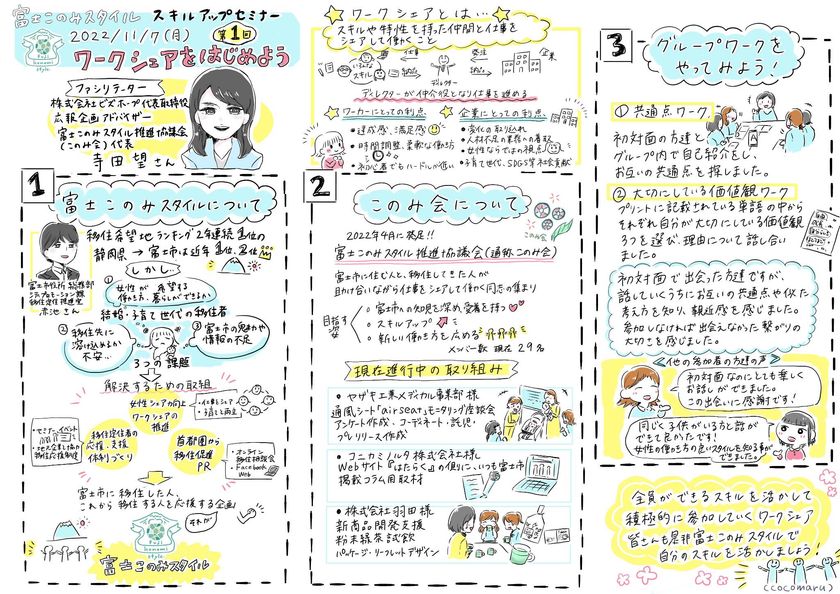 富士このみスタイル スキルアップセミナー
2022/11/7(月) 第1回
ワークシェアをはじめよう
Fuji
konomi
style
ファシリテーター
株式会社ビズホープ代表取締役
広報企画アドバイザー
富士このみスタイル推進協議会
(このみ会)代表
寺田 望さん
ワークシェアとは…
スキルや特性を持った仲間と仕事を
シェアして働くこと
いろんな
スキル
ディレクター
発注
企業
ディレクターが仲介役となり仕事を進める
ワーカーにとっての利点
・達成感、満足感
・時間調整、柔軟な働き方
・初心者でもハードルが低い
企業にとっての利点
・変化の取り入れ
・人材不足の業務への着眼
・女性ならではの視点
・子育て世代、SDGs等社会貢献
1
富士このみスタイルについて
移住希望地ランキング2年連続1位の
静岡県→富士市は近年
富士市役所 総務部
シティプロモーション課
移住定住推進室
赤池さん
しかし…
①女性が希望する
働き方、暮らしができるか
結婚・子育て世代の移住者
②移住先に
溶け込めるか
不安…
③富士市の魅力や
情報の不足
3つの課題
解決するための取組
女性シェア力向上
ワークシェアの
推進
・仕事とシェア
・子育てと両立
移住定住者の
応援、支援
体制づくり
首都圏から
移住促進
PR
・オンライン
移住相談会
・Facebook
・Web
富士市に移住した人、
これから移住する人を応援する企画
それが
Fuji
konomi
style
富士このみスタイル
2
このみ会について
2022年4月に発足!!
このみ会
富士このみスタイル推進協議会(通称このみ会)
富士市に住む人と、移住してきた人が
助け合いながら仕事をシェアして働く同志の集まり
目指す
姿
○富士市への知見を深め、愛着を持つ
○スキルアップ
○新しい働き方を広める
メンバー数 現在29名
現在進行中の取り組み
・ヤザキ工業メディカル事業部様
通風シート「airseat」モニタリング座談会
アンケート作成・コーディネート・託児・
プレリリース作成
・コニカミノルタ株式会社様
Webサイト『はたらく』の傍りに、いつも富士市
掲載コラム用取材
・株式会社羽田様
新商品開発支援
粉末緑茶試飲
パッケージ・リーフレットデザイン
3
グループワークを
やってみよう!
①共通点ワーク
初対面の方達と
グループ内で自己紹介をし、
お互いの共通点を探しました。
②大切にしている価値観ワーク
プリントに記載されている単語の中から
それぞれ自分が大切にしている価値観
3つを選び、理由について話し合い
ました。
初対面で出会った方達ですが、
話していくうちにお互いの共通点や似た
考え方を知り、親近感を感じました。
参加しなければ出会えなかった繋がりの
大切さを感じました。
《他の参加者の方達の声》
初対面なのにとても楽しく
お話しができました。
この出会いに感謝です!
同じく子供がいる方と話が
できて良かったです!
女性の働き方の色んなスタイルを知る事が
できました!
全員ができるスキルを活かして
積極的に参加していくワークシェア
皆さんも是非富士このみスタイルで
自分のスキルを活かしましょう!
(cocomaru)